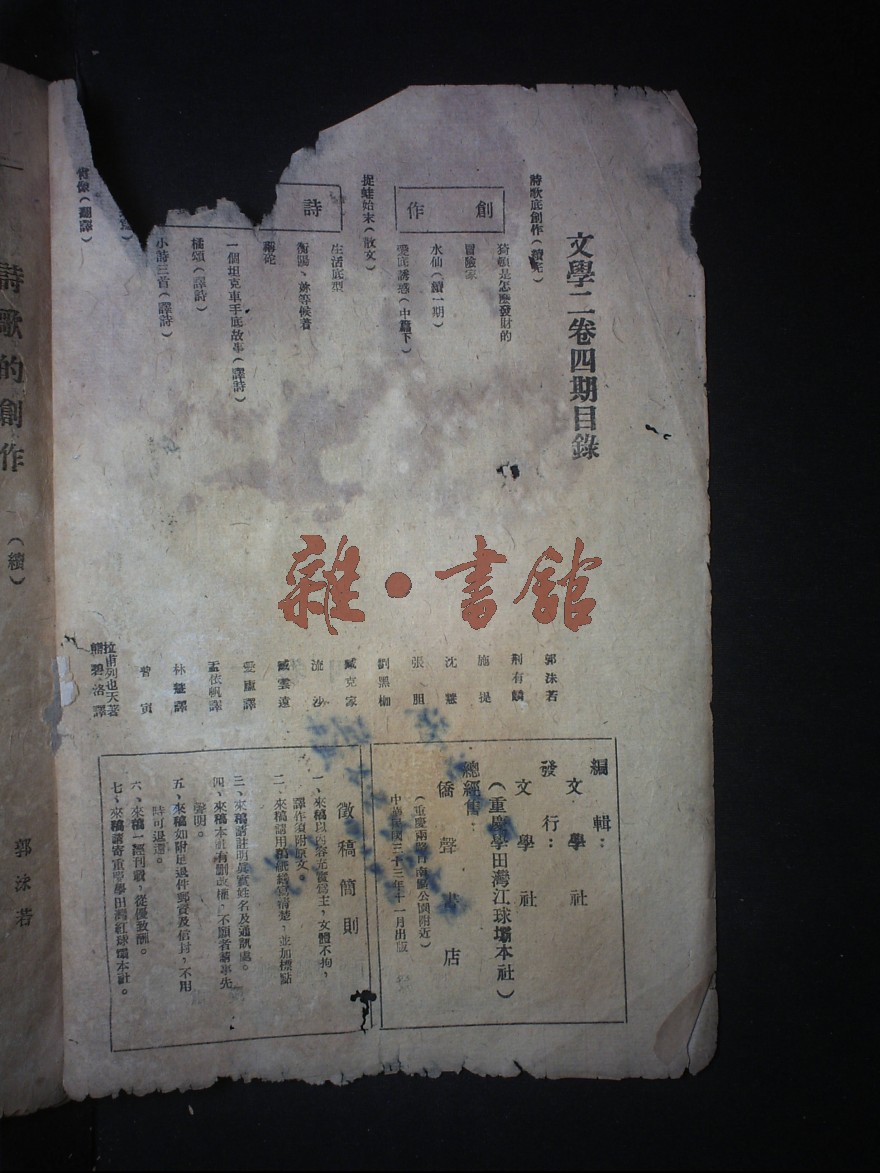 文學二卷四期目錄
詩歌底創作(續完)
郭沫若
創作
猗頓是怎麼發財的
荊有麟
冒險家
施提
水仙(續一期)
沈慧
愛底誘惑(中篇下)
張膽
捉蛙始末(散文)
劉黑枷
詩
生活底型
臧克家
衡陽、妳等候着
流沙
臧雲遠
一個坦克車手底故事(譯詩)
愛廬譯
橘頌(譯詩)
孟依帆譯
小詩三首(譯詩)
林慧譯
曹寅
肖像(翻譯)
拉甫列也夫著
熊碧洛譯
編輯:
文學社
發行:
文學社
(重慶學田灣江球壩本社)
總經售:
僑聲書店
(重慶兩路口南區公園附近)
中華民國三十三年十一月出版
徵稿簡則
一、來稿以內容充實爲主,文體不拘,
譯作須附原文。
二、來稿請用稿紙繕寫清楚,並加標點
三、來稿請註明眞實姓名及通訊處。
四、來稿本社有刪改權,不願者請事先
聲明。
五、來稿如附足退件郵資及信封,不用
時可退還。
六、來稿一經刊載,從優致酬。
七、來稿請寄重慶學田灣紅球壩本社。
詩歌的創作(續)
郭沫若
雜·書館